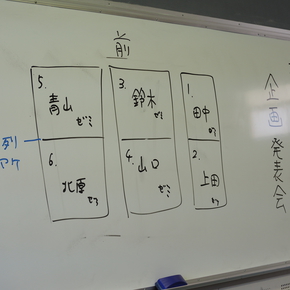 前
5.
青山
ゼミ
3.
鈴木
ゼミ
1.
田中
ゼミ
6.
北原
ゼミ
4.
山口
ゼミ
2.
上田
ゼミ
列
アケ
企画発表会